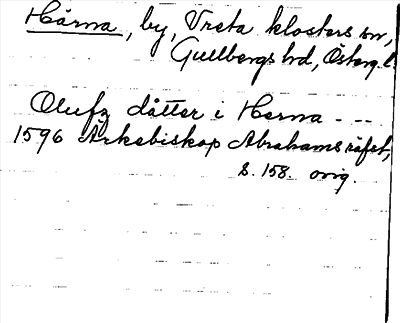 Härna, by, Vreta klosters sn,
Gullbergs hd, Österg. l.
Olufz dåtter i Herna - --
1596 Ärkebiskop Abrahams räfst,
s. 158. orig.